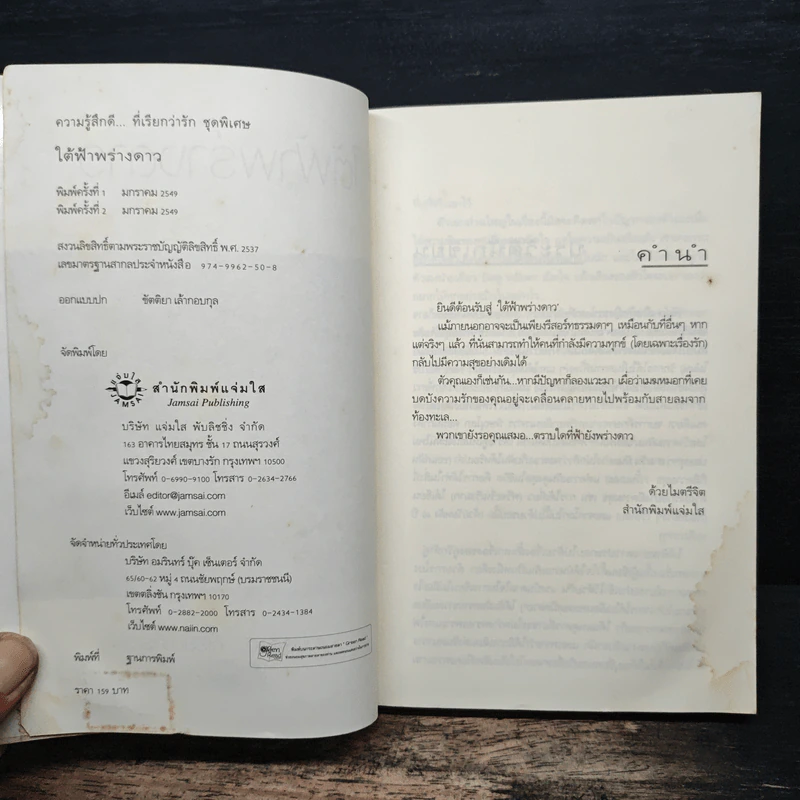 ความรู้สึกดี... ที่เรียกว่ารัก ชุดพิเศษ
ใต้ฟ้าพร่างดาว
พิมพ์ครั้งที่ 1 มกราคม 2549
พิมพ์ครั้งที่ 2 มกราคม 2549
สงวนลิขสิทธิ์ตามพระราชบัญญัติลิขสิทธิ์ พ.ศ. 2537
เลขมาตรฐานสากลประจำหนังสือ 974-9962-50-8
ออกแบบปก ชัตติยา เล้ากอบกุล
จัดพิมพ์โดย
สำนักพิมพ์แจ่มใส
Jamsai Publishing
บริษัท แจ่มใส พับลิชชิ่ง จำกัด
163 อาคารไทยสมุทร ชั้น 17 ถนนสุรวงศ์
แขวงสุริยวงศ์ เขตบางรัก กรุงเทพฯ 10500
โทรศัพท์ 0-6990-9100 โทรสาร 0-2634-2766
อีเมล์ editor@jamsai.com
เว็บไซต์ www.jamsai.com
จัดจำหน่ายทั่วประเทศโดย
บริษัท อมรินทร์ บุ๊ค เซ็นเตอร์ จำกัด
65/60-62 หมู่ 4 ถนนชัยพฤกษ์ (บรมราชชนนี)
เขตตลิ่งชัน กรุงเทพฯ 10170
โทรศัพท์ 0-2882-2000 โทรสาร 0-2434-1384
เว็บไซต์ www.naiin.com
พิมพ์ที่ ฐานการพิมพ์
ราคา 159 บาท
คำนำ
ยินดีต้อนรับสู่ 'ใต้ฟ้าพร่างดาว'
แม้ภายนอกอาจจะเป็นเพียงรีสอร์ทธรรมดาๆ เหมือนกับที่อื่นๆ หาก
แต่จริงๆ แล้ว ที่นั่นสามารถทำให้คนที่กำลังมีความทุกข์ (โดยเฉพาะเรื่องรัก)
กลับไปมีความสุขอย่างเดิมได้
ตัวคุณเองก็เช่นกัน...หากมีปัญหาก็ลองแวะมา เผื่อว่าเมฆหมอกที่เคย
บดบังความรักของคุณอยู่จะเคลื่อนคลายหายไปพร้อมกับสายลมจาก
ท้องทะเล...
พวกเขายังรอคุณเสมอ...ตราบใดที่ฟ้ายังพร่างดาว
ด้วยไมตรีจิต
สำนักพิมพ์แจ่มใส